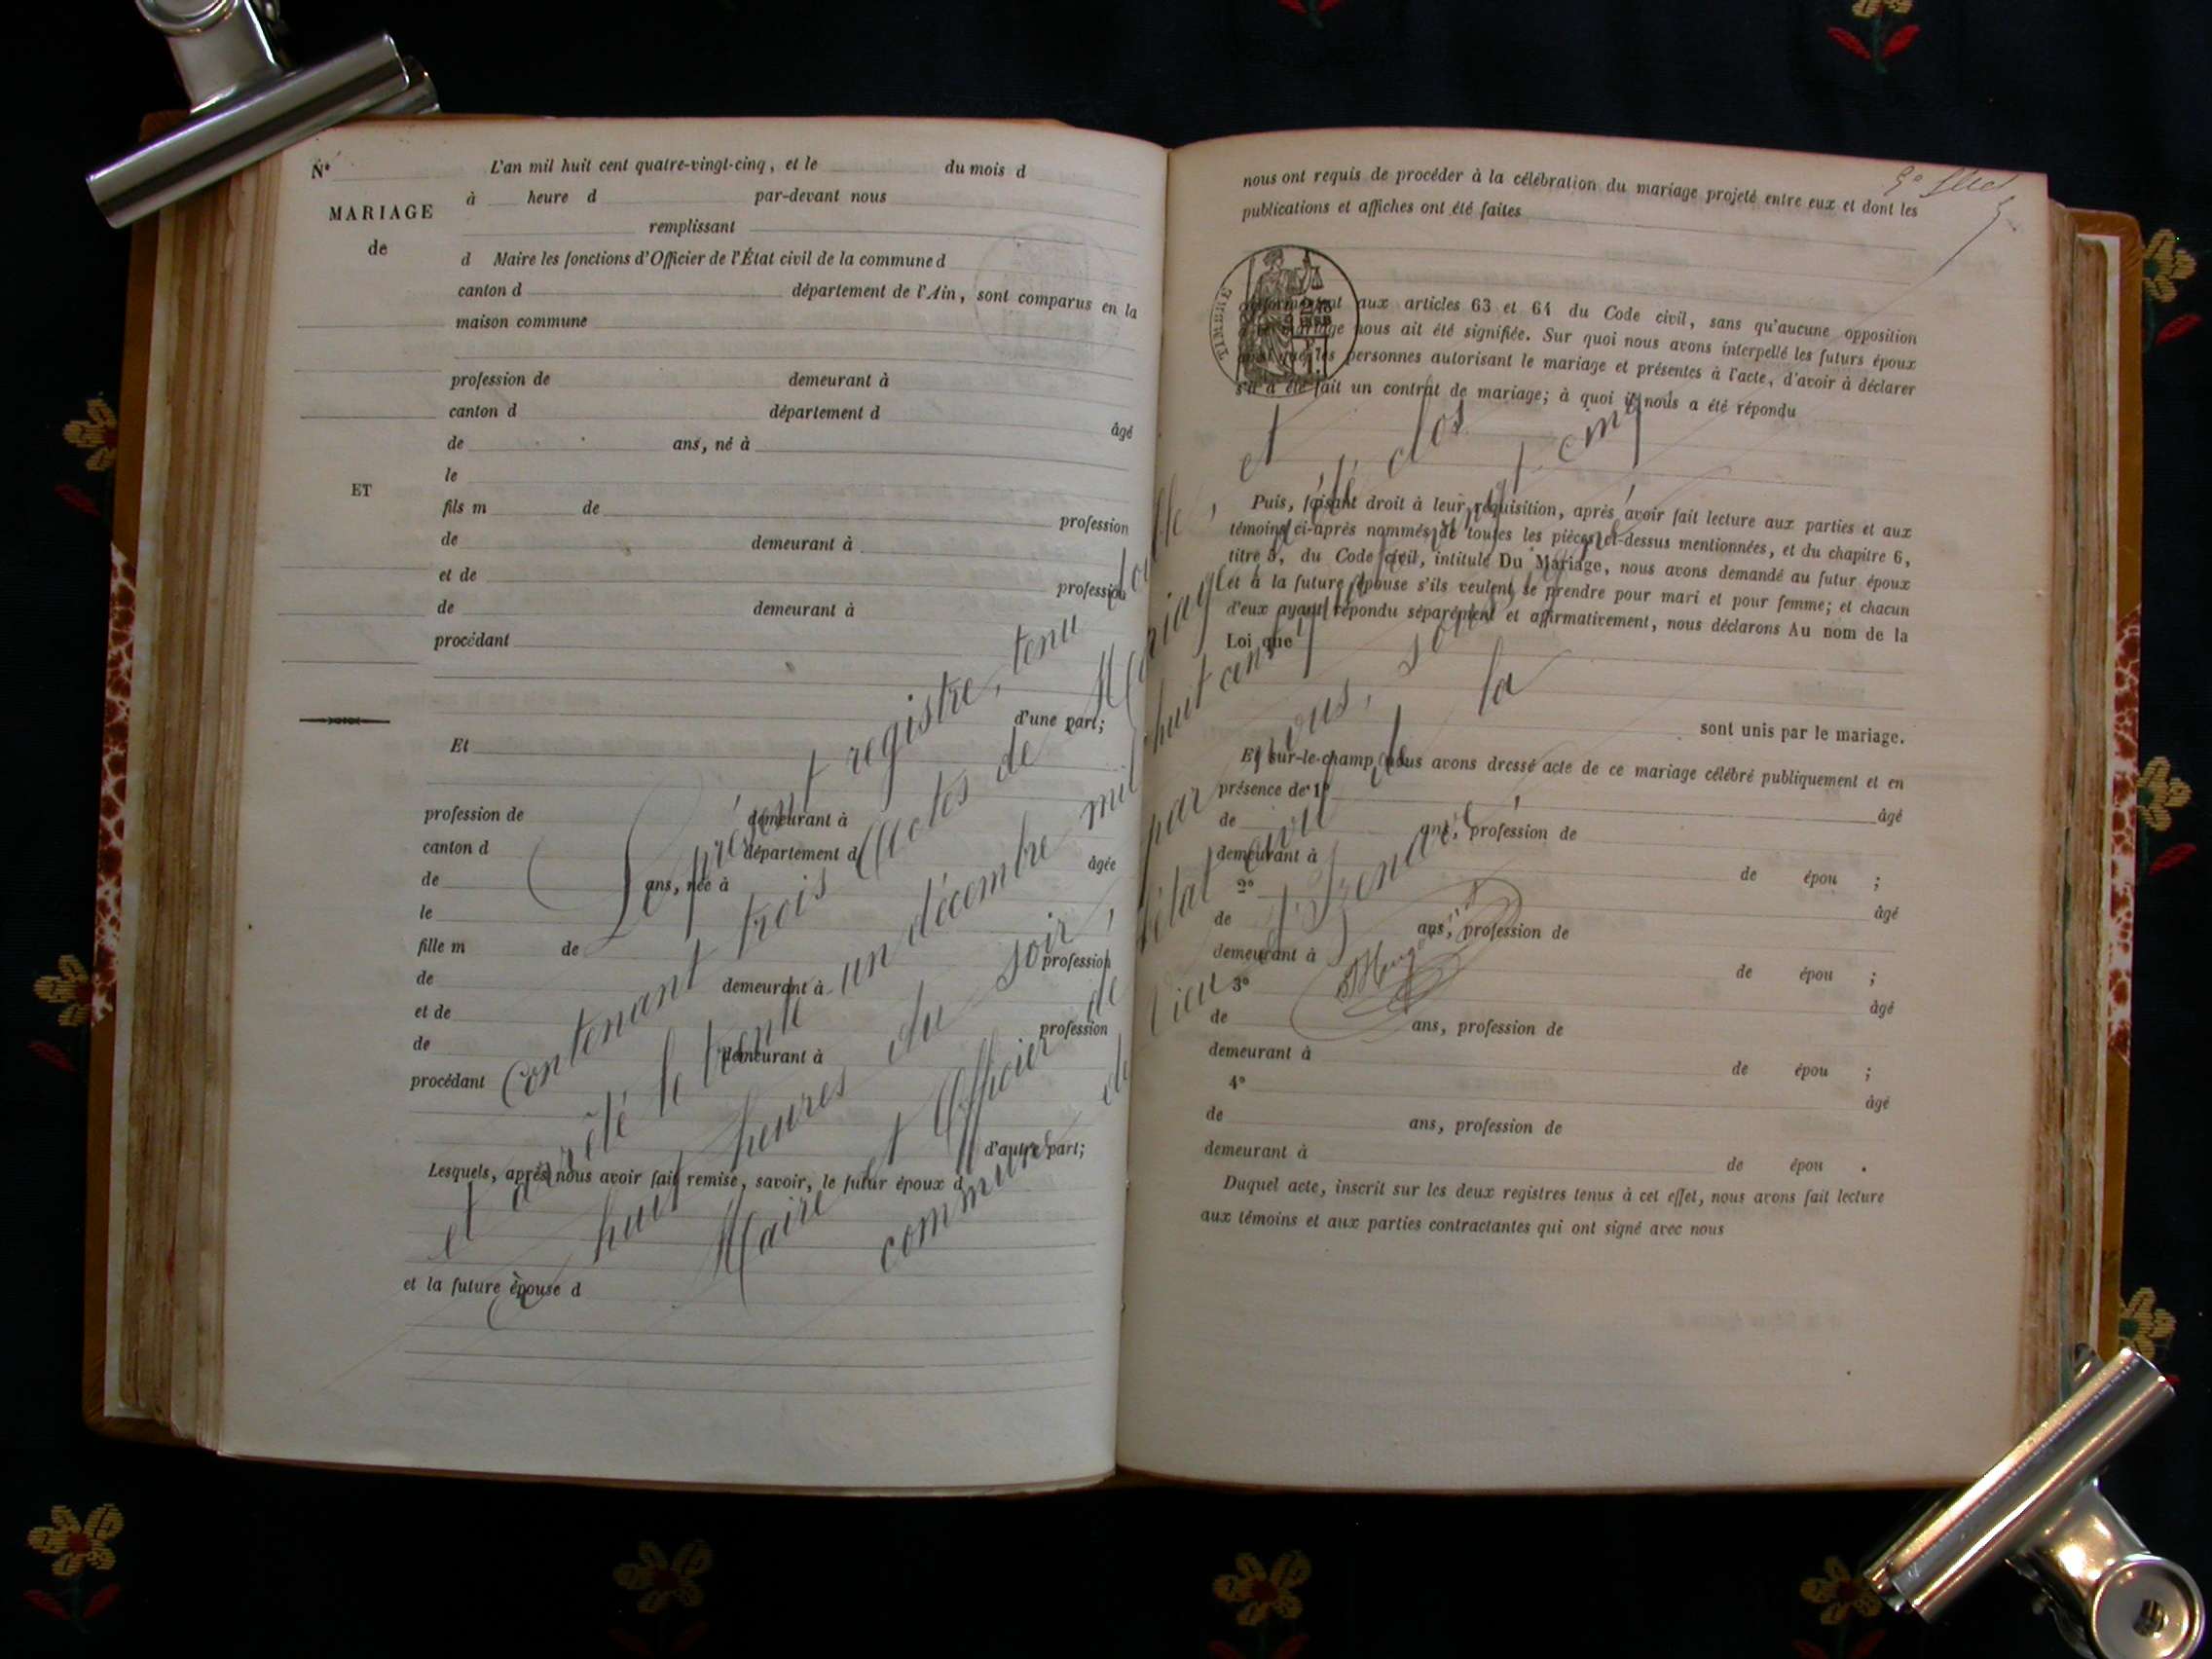 N°
L'an mil huit cent quatre-vingt-cinq, et le du mois d
MARIAGE
de
à heure d par-devant nous
remplissant
d Maire les fonctions d'Officier de l'État civil de la commune d
canton d département de l'Ain, sont comparus en la
maison commune
profession de demeurant à
canton d département d âgé
de ans, né à
le
ET
fils m de profession
de demeurant à
et de profession
de demeurant à
procédant
d'une part;
Et
profession de demeurant à
canton d département d âgée
de ans, née à
le
fille m de profession
de demeurant à
et de profession
de demeurant à
procédant
d'autre part;
Lesquels, après nous avoir fait remise, savoir, le futur époux d
et la future épouse d
nous ont requis de procéder à la célébration du mariage projeté entre eux et dont les
publications et affiches ont été faites
TIMBRE
aux articles 63 et 64 du Code civil, sans qu'aucune opposition
mariage nous ait été signifiée. Sur quoi nous avons interpellé les futurs époux
les personnes autorisant le mariage et présentes à l'acte, d'avoir à déclarer
s'il a été fait un contrat de mariage; à quoi il nous a été répondu
Puis, faisant droit à leur réquisition, après avoir fait lecture aux parties et aux
témoins ci-après nommés, de toutes les pièces ci-dessus mentionnées, et du chapitre 6,
titre 5, du Code civil, intitulé Du Mariage, nous avons demandé au futur époux
et à la future épouse s'ils veulent se prendre pour mari et pour femme; et chacun
d'eux ayant répondu séparément et affirmativement, nous déclarons Au nom de la
Loi que
sont unis par le mariage.
Et sur-le-champ, nous avons dressé acte de ce mariage célébré publiquement et en
présence de 1°
âgé
de ans, profession de
demeurant à de épou ;
2° âgé
de ans, profession de
demeurant à de épou ;
3° âgé
de ans, profession de
demeurant à de épou ;
4° âgé
de ans, profession de
demeurant à de épou .
Duquel acte, inscrit sur les deux registres tenus à cet effet, nous avons fait lecture
aux témoins et aux parties contractantes qui ont signé avec nous
Le présent registre, tenu double, et
contenant trois Actes de Mariage
et arrêté le trente un décembre mil huit cent
huit heures du soir, par nous, la
Maire et Officier de l'état civil de
commune de lieu